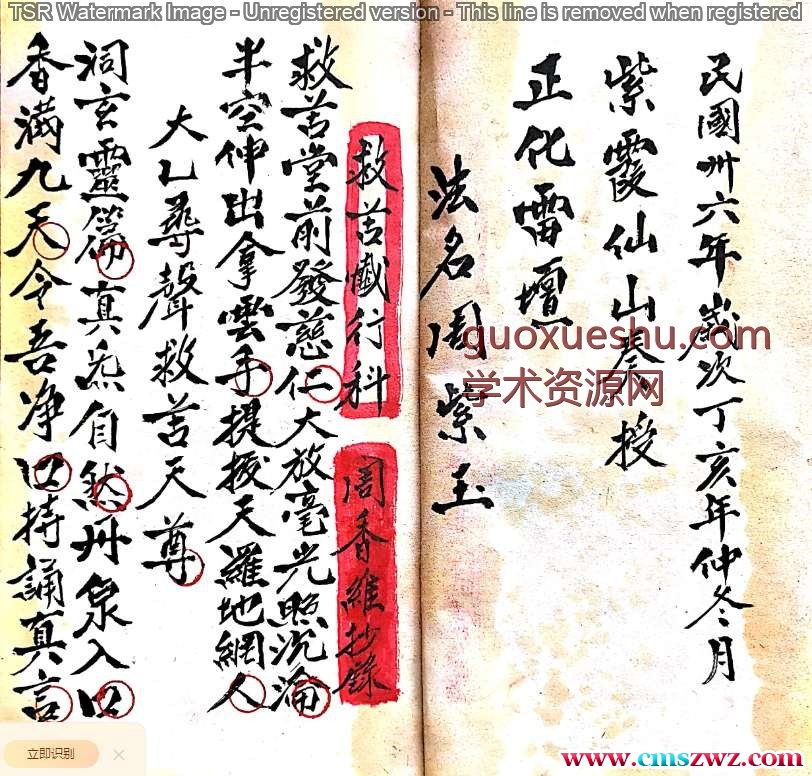 TSR Watermark Image - Unregistered version - This line is removed when registered
民國卅六年歲次丁亥年仲冬月
紫霞仙山奏授
正化雷壇
法名周紫玉
救苦懺行科 周香維抄錄
救苦堂前發慈仁大放毫光照沉淪
半空伸出拿雲手提拔天羅地網人
大乙尋聲救苦天尊
洞玄靈篇真炁自然丹泉入口
香滿九天令吾净口持誦真言
guoxueshu.com
学术资源网
立即识别
www.cmszwz.com